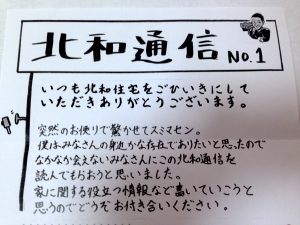 北和通信 NO.1
いつも北和住宅をごひいきにして
いただきありがとうございます。
突然のお便りで驚かせてスミマセン。
僕はみなさんの身近かな存在でありたいと思ったので
なかなか会えないみなさんにこの北和通信を
読んでもらおうと思いました。
家に関する役立つ情報など書いていこうと
思うのでどうぞお付き合いください。